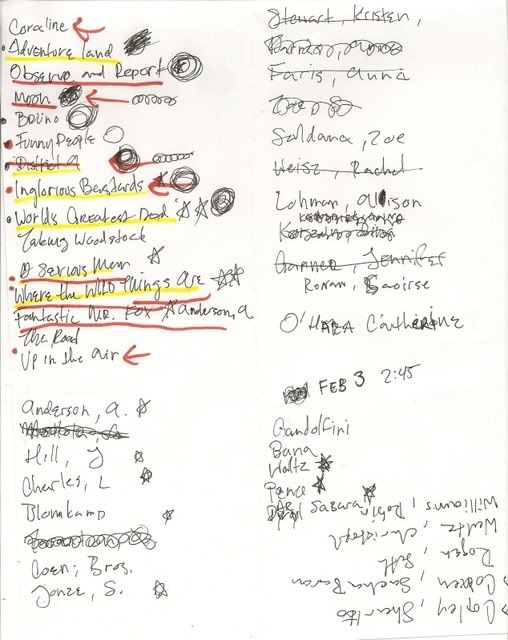 Coraline
Adventure land
Observe and Report
Moon
Bruno
Funny People
District 9
Inglorious Basterds
World's Greatest Dad
Taking Woodstock
A Serious Man
Where the Wild Things Are
Fantastic Mr. Fox Anderson, a.
The Road
Up in the air
Anderson, a.
Hill, J
Charles, L
Blomkamp
Coen, Bros.
Jonze, S.
Stewart, Kristen,
Faris, anna
Saldana, Zoe
Weisz, Rachel
Lohman, Allison
Garner, Jennifer
Ronan, Saoirse
O'HARA Catherine
FEB 3 2:45
Gandolfini
Bana
Waltz
Pence
Williams, Robin
Waltz, Christoph
Rogen, Seth
Cohen, Sacha Baron
Copley, Sharlto